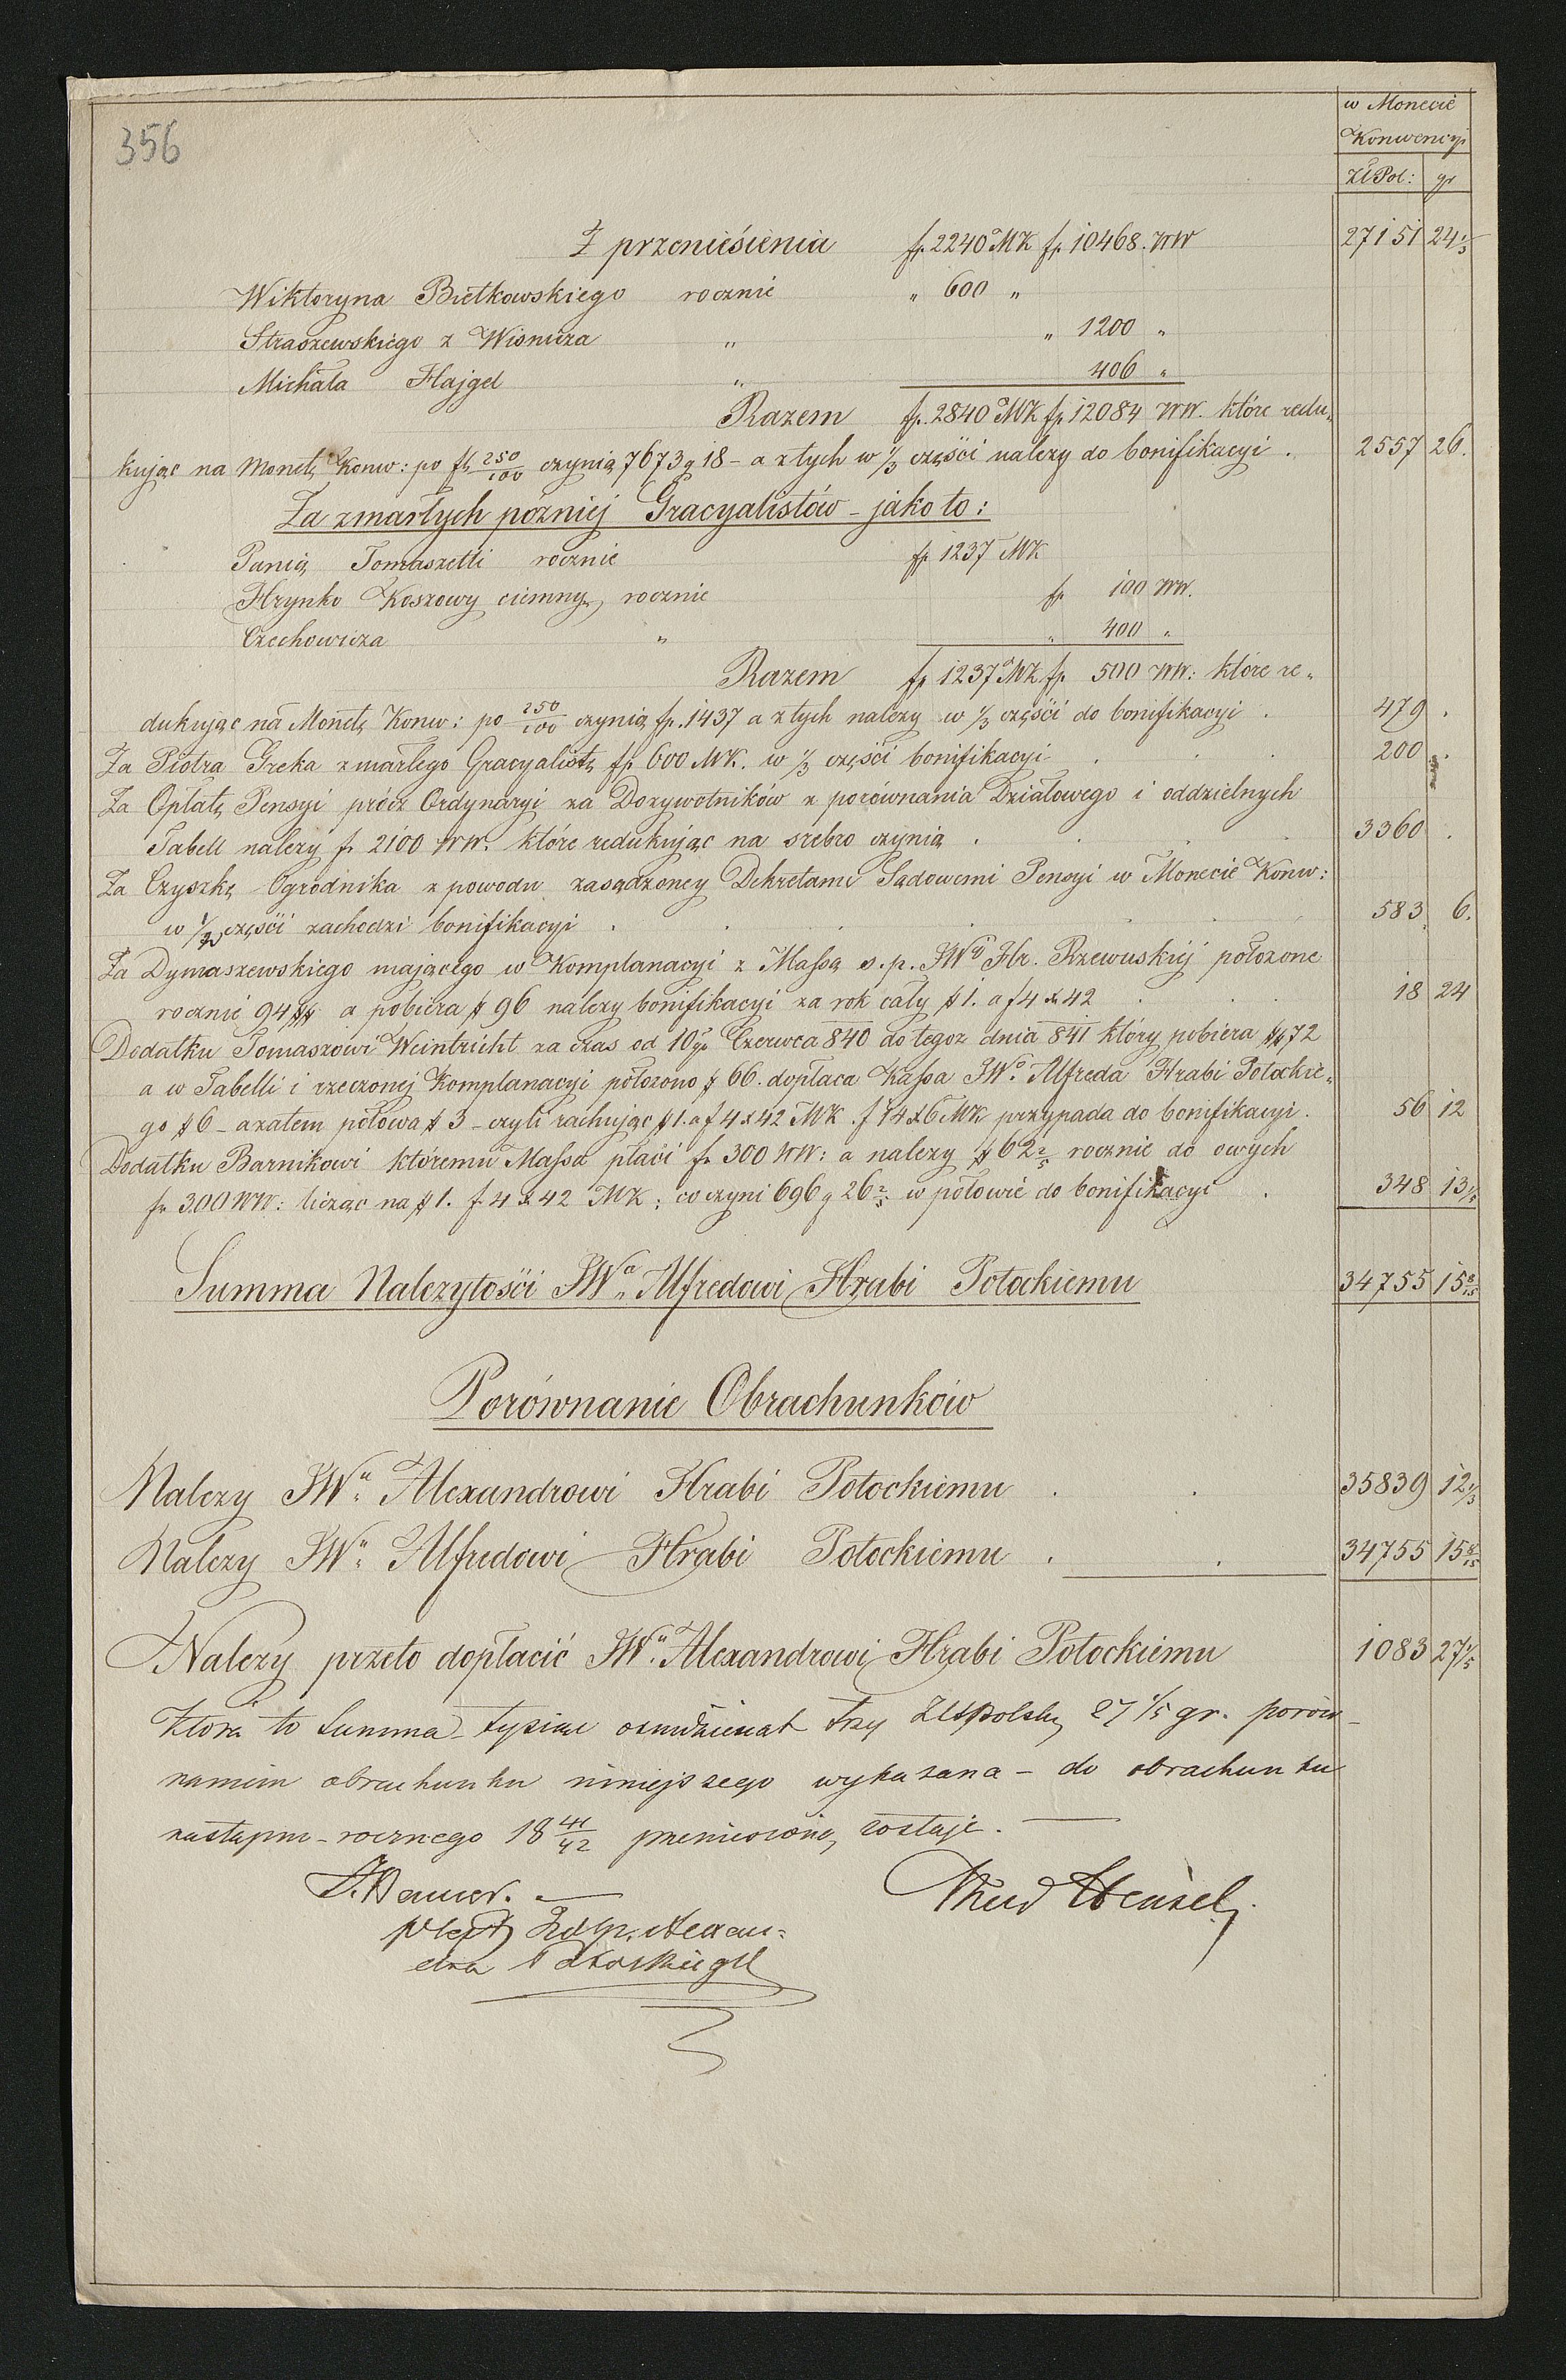 356
w Monecie
Konwencyi
Zł Pol: gr
Z przeniésienia fr. 2240 MK fr. 10468. WW 27151 24 1/3
Wiktoryna Bietkowskiego rocznie „ 600 „
Straszewskiego z Wisnicza „ „ 1200 „
Michała Hajgel „ 406 „
Razem fr. 2840 MK fr 12084 WW. które redu„
kując na Monetę Konw: po fr 250/100 czynią 7673 g 18 – a z tych w 1/3 części nalezy do bonifikacyi . 2557 26.
Za zmarłych pozniej Gracyalistów – jako to:
Panią Tomaszetti rocznie fr 1237 MK
Hrynko Koszowy ciemny, rocznie fr 100 WW.
Czechowicza „ „ 400 „
Razem fr 1237 MK fr 500 WW: które re„
dukując na Monetę Konw: po 250/100 czynią fr. 1437 a z tych nalezy w 1/3 części do bonifikacyi . 479 .
Za Piotra Greka zmarłego Gracyalistę fr 600 MK. w 1/3 części bonifikacyi . . . 200 .
Za Opłatę Pensyi prócz Ordynaryi za Dozywotników z porównania Działowego i oddzielnych
Tabell nalezy fr 2100 WW. które redukując na srebro czynią . . . 3360 .
Za Czyszkę Ogrodnika z powodu zasądzoney Dekretami Sądowemi Pensyi w Monecie Konw:
w 1/2 części zachodzi bonifikacyi . . . . 583 6.
Za Dymaszewskiego mającego w Komplanacyi z Massą s.p. JWy Hr. Rzewuskiéj połozone
rocznie 94 # a pobiera # 96 nalezy bonifikacyi za rok cały # 1. a f 4 x 42 . . . 18 24
Dodatku Tomaszowi Weintricht za czas od 10go Czerwca 840 do tegoz dnia 841 który pobiera # 72
a w Tabelli i rzeczonéj Komplanacyi połozono # 66. dopłaca Kassa JWo Alfreda Hrabi Potockie„
go # 6 – azatem połowa # 3 – czyli rachując # 1. a f 4 x 42 MK . f 14 x 6 MK przypada do bonifikacyi . 56 12
Dodatku Barnikowi któremu Massa płaci fr 300 WW: a nalezy # 62 2/5 rocznie do owych
fr 300 WW: licząc na # 1. f. 4 x 42 MK ; co czyni 696 g 26 2/5 w połowie do bonifikacyi . 348 13 1/5
Summa Nalezytości JWu Alfredowi Hrabi Potockiemu 34755 15 8/15
Porównanie Obrachunków
Nalezy JWu Alexandrowi Hrabi Potockiemu . . 35839 12 1/3
Nalezy JWu Alfredowi Hrabi Potockiemu . . 34755 15 8/15
Nalezy przeto dopłacić JWu Alexandrowi Hrabi Potockiemu 1083 27 1/5
która to Summa tysiąc osmdziesiąt trzy Złt polskie, 27 1/5 gr. porów–
naniem obrachunku niniejszego wykazana – do obrachunku
następno-rocznego 18 41/42 przeniesioną, zostaje. —
plept Alexan=
dra Potockiego